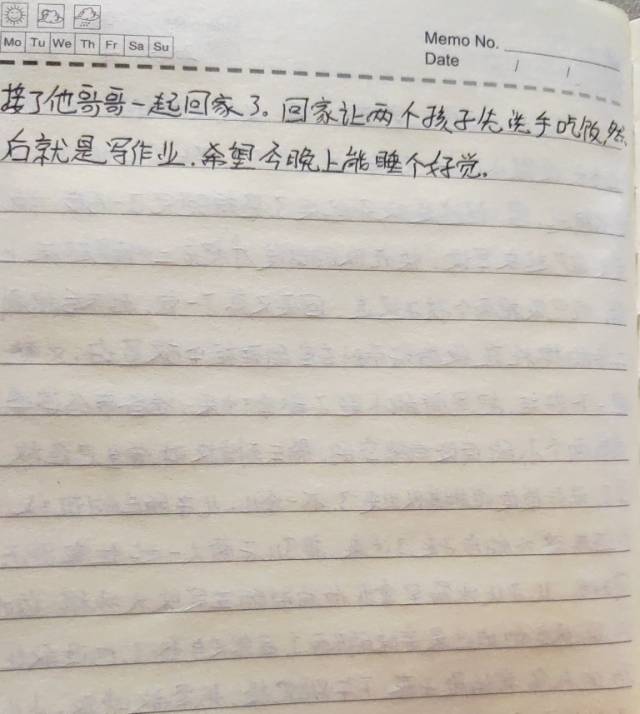 Mo Tu We Th Fr Sa Su
Memo No.
Date / /
接了他哥哥一起回家了。回家让两个孩子先洗手吃饭,然
后就是写作业.希望今晚上能睡个好觉.